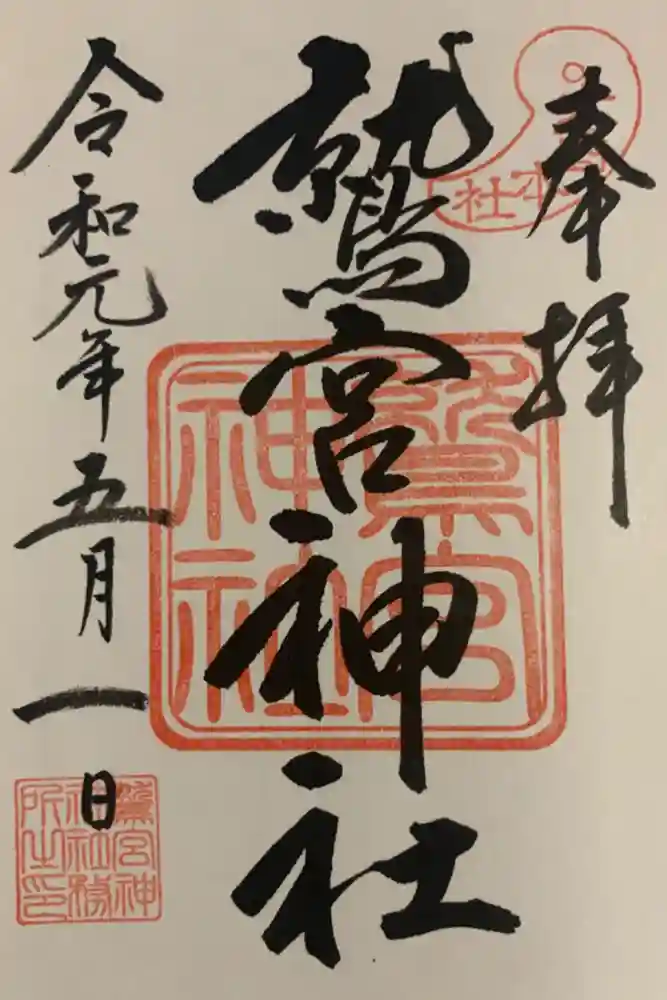 奉拝
本社
鷲宮神社
鷲宮
神社
令和元年五月一日
鷲宮神
社務
所之印